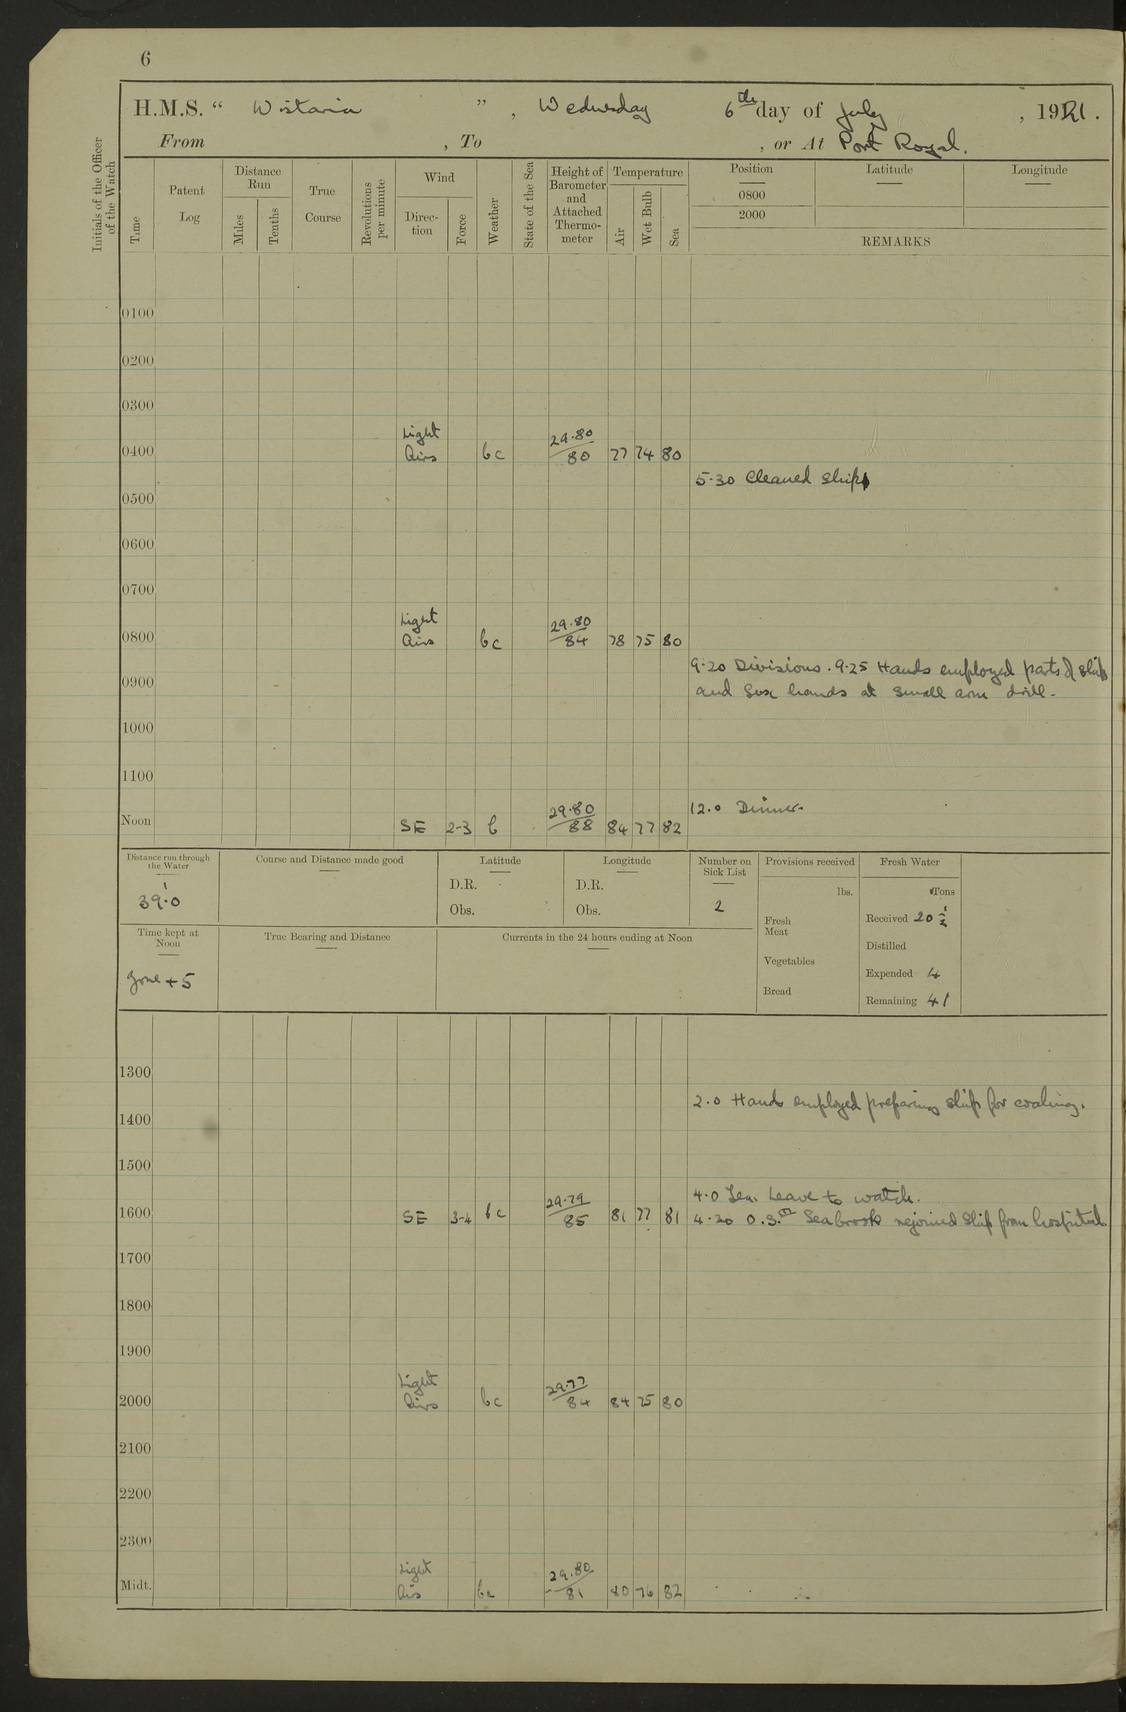 6
H.M.S. “ Wistaria ”, Wednesday 6th day of July, 1921.
From , To , or At Port Royal.
Initials of the Officer of the Watch
Time
Patent Log
Distance Run
Miles
Tenths
True Course
Revolutions per minute
Wind
Direction
Force
Weather
State of the Sea
Height of Barometer and Attached Thermometer
Temperature
Air
Wet Bulb
Sea
Position Latitude Longitude
0800
2000
REMARKS
0100
0200
0300
Light 29.80
0400 Airs bc 80 77 74 80
5.30 Cleaned Ship
0500
0600
0700
Light 29.80
0800 Airs bc 84 78 75 80
9.20 Divisions. 9.25 Hands employed parts of ship
0900 and hands at small arm drill.
1000
1100
29.80 12.0 Dinner.
Noon SE 2-3 b 88 84 77 82
Distance run through the Water
39.0
Course and Distance made good
Latitude
D.R.
Obs.
Longitude
D.R.
Obs.
Number on Sick List
2
Provisions received
lbs.
Fresh Meat
Vegetables
Bread
Fresh Water
Tons
Received 20 ½
Distilled
Expended 4
Remaining 41
Time kept at Noon
Zone +5
True Bearing and Distance
Currents in the 24 hours ending at Noon
1300
2.0 Hands employed preparing ship for coaling.
1400
1500
29.79 4.0 Leave to watch.
1600 SE 3-4 bc 85 81 77 81 4.20 O.S. Seabrook rejoined ship from hospital.
1700
1800
1900
Light 29.77
2000 Airs bc 84 84 75 80
2100
2200
2300
Light 29.80
Midt. Airs bc 81 80 76 82